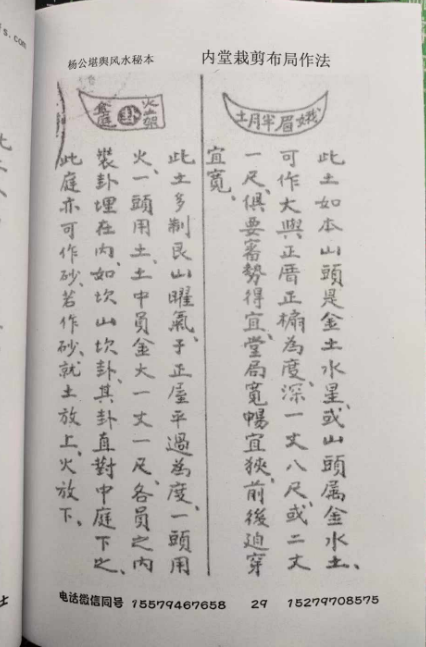 杨公堪舆风水秘本
内堂栽剪布局作法
娥眉半月土
此土如本山頭是金土水星、或山頭属金水土、
可作大與正厝正楄為度、深一丈八尺、或二丈
一尺、俱要審勢得宜、堂局寬暢宜狹、前後迫窄
宜寬、
此土多制艮山曜氣、于正屋平過為度、一頭用
火、一頭用土、土中員金火一丈一尺、各員之内
裝卦埋在内、如坎山坎卦、其卦直對中庭下之、
此庭亦可作砂、若作砂、就土放上、火放下、
电话微信同号 15579467658 29 15279708575